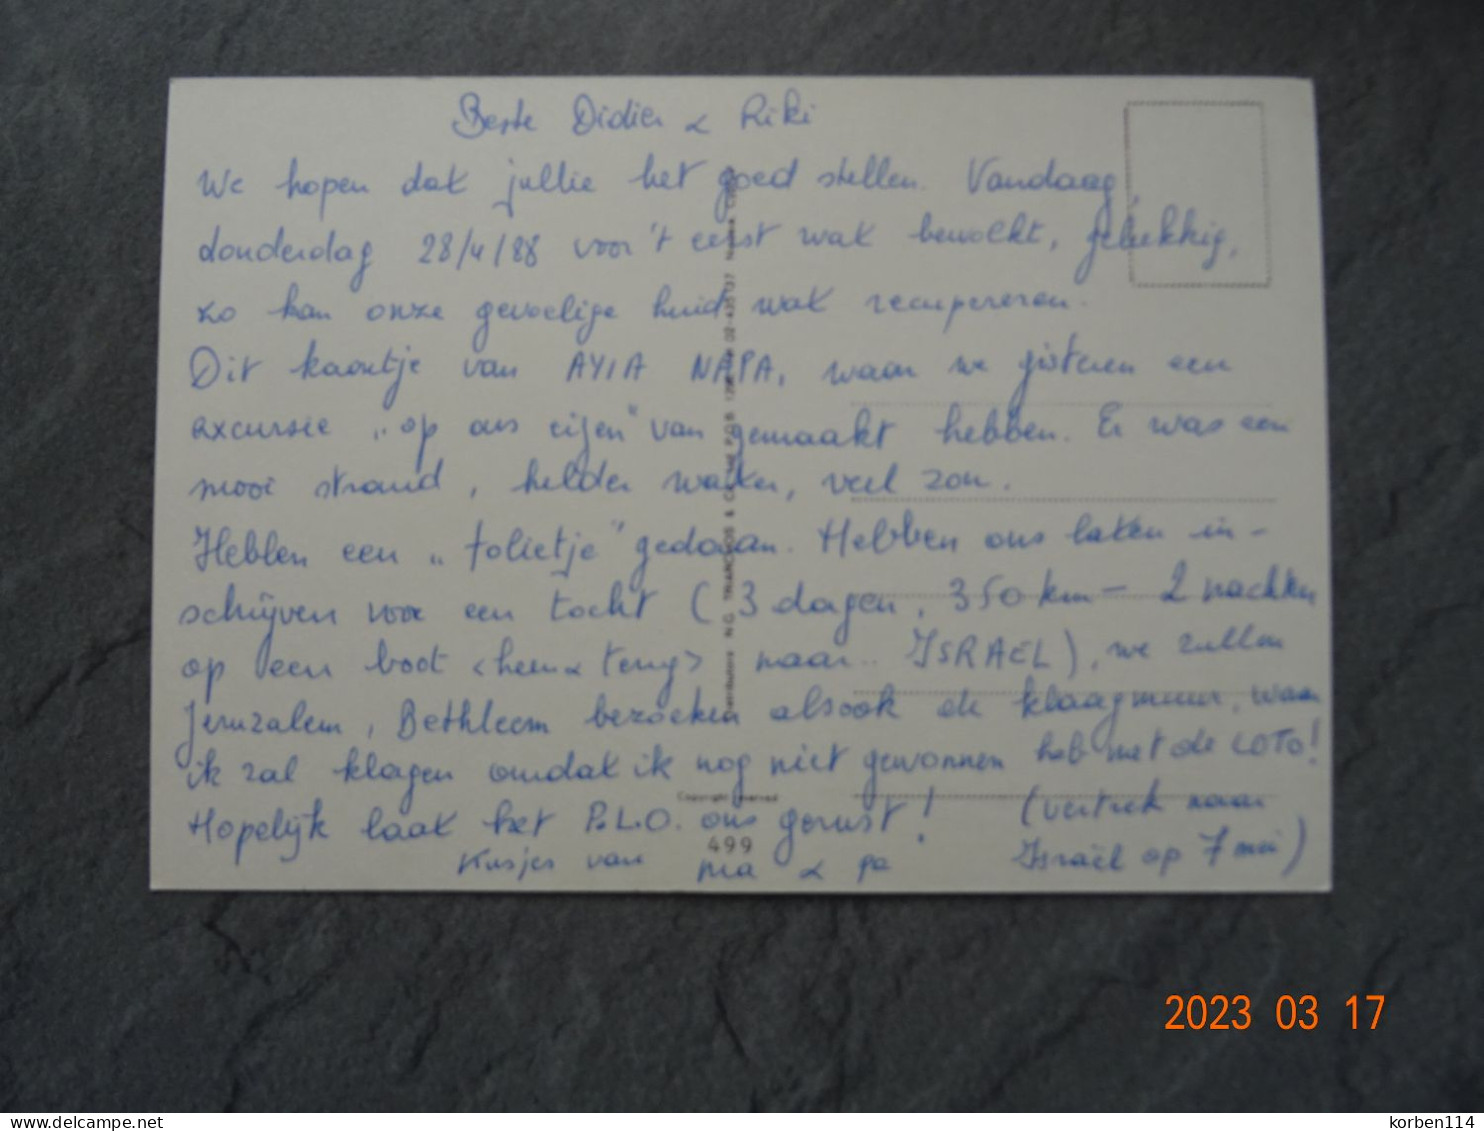 Beste Didier & Riki
We hopen dat jullie het goed stellen. Vandaag,
donderdag 28/4/88 voor 't eerst wat bewolkt, gelukkig,
zo kan onze gevoelige huid wat recupereren.
Dit kaartje van AYIA NAPA, waar we gisteren een
excursie „op ons eigen" van gemaakt hebben. Er was een
mooi strand, helder water, veel zon.
Hebben een „folietje" gedaan. Hebben ons laten in-
schrijven voor een tocht (3 dagen, 350 km – 2 nachten
op een boot <heen & terug> naar ISRAEL), we zullen
Jeruzalem, Bethleem bezoeken alsook de klaagmuur, waar
ik zal klagen omdat ik nog niet gewonnen heb met de LOTO!
Hopelijk laat het P.L.O. ons gerust! (vertrek naar
Israël op 7 mei)
Kusjes van ma & pa
Copyright Reserved
499
2023 03 17
korben114